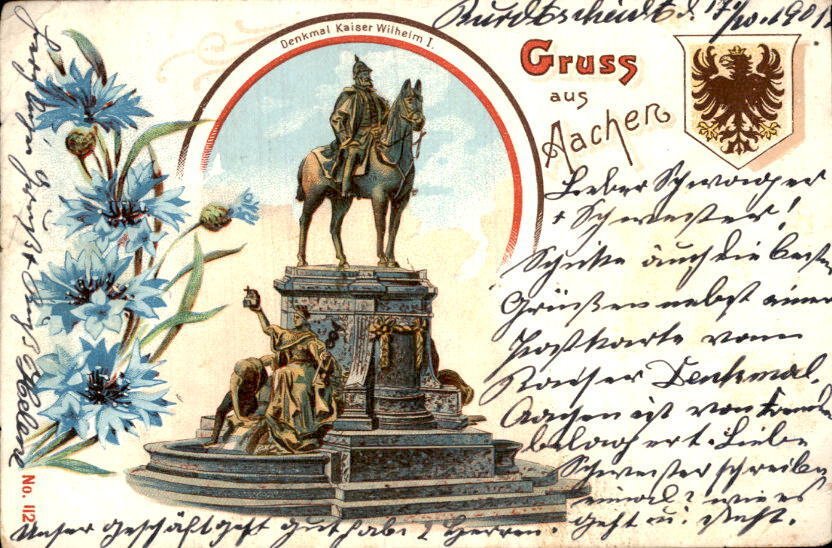 Burdtscheidt d. 17/10. 1901
Denkmal Kaiser Wilhelm I.
Gruss
aus
Aachen
Lieber Schwager
+ Schwester!
Schicke auch die besten
Grüßen nebst einer
Postkarte vom
Kaiser Denkmal.
Aachen ist von
belagert. Liebe
Schwester schreibe
einmal? wie es
geht u. steht.
Unser Geschäft geht gut habe 2 Herren.
No. 112